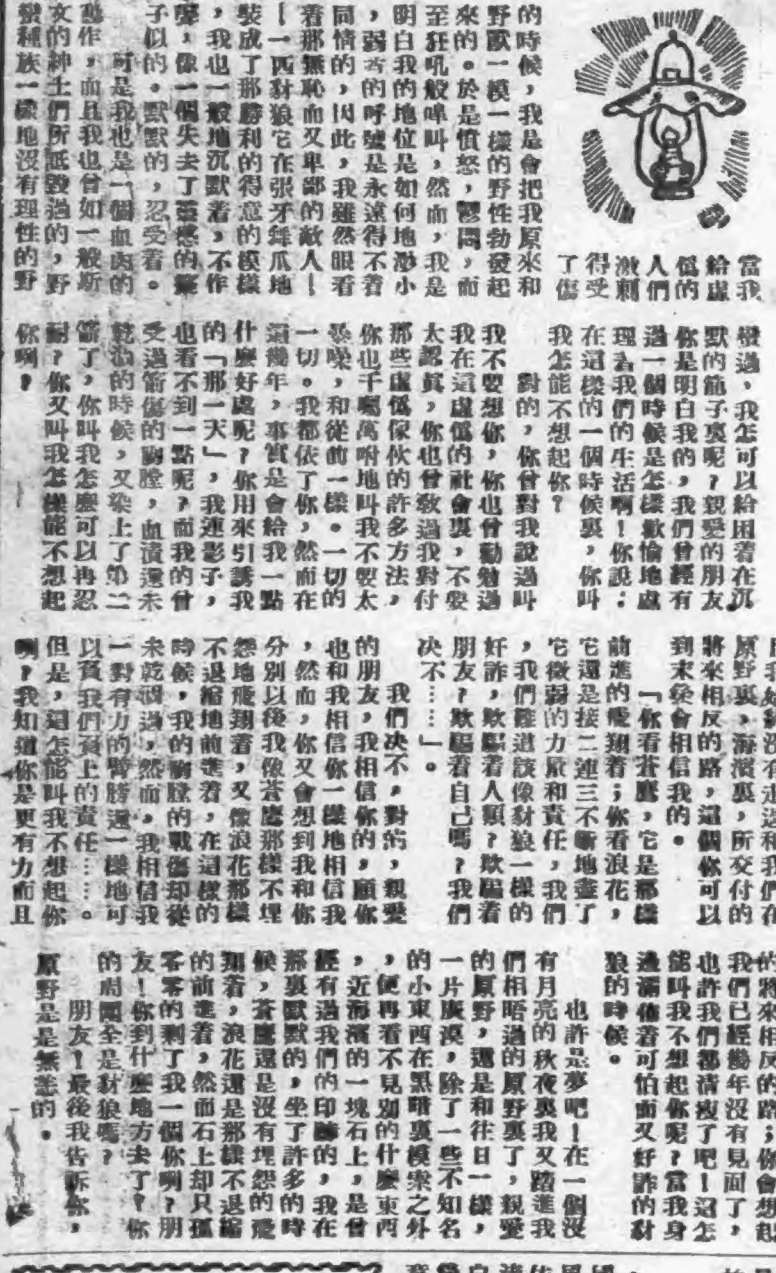 當我
給虛
僞的
人們
激刺
得受
了傷
的時候，我是會把我原來和
野獸一模一樣的野性勃發起
來的。於是憤怒，鬱悶，而
至狂吼般嘷叫，然而，我是
明白我的地位是如何地渺小
，弱者的呼號是永遠得不着
同情的，因此，我雖然眼看
着那無恥而又卑鄙的敵人！
——匹豺狼它在張牙舞爪地
裝成了那勝利的得意的模樣
，我也一般地沉默着，不作
聲，像一個失去了靈感的
子似的。默默的，忍受着。
可是我也是一個血肉的
動作，而且我也曾如一般斯
文的紳士們所詆毀過的，野
蠻種族一樣地沒有理性的野
蠻過，我怎可以給困着在沉
默的籠子裏呢？親愛的朋友
你是明白我的，我們曾經有
過一個時候是怎樣歡愉地處
理着我們的生活啊！你說：
在這樣的一個時候裏，你叫
我怎能不想起你？
對的，你曾對我說過叫
我不要想你，你也曾勸勉過
我在這虛僞的社會裏，不要
太認真，你也曾敎過我對付
那些虛僞傢伙的許多方法，
你也千囑萬咐地叫我不要太
暴噪，和從前一樣。一切的
一切。我都依了你，然而在
這幾年，事實是會給我一點
什麼好處呢？你用來引誘我
的「那一天」，我連影子，
也看不到一點呢？而我的曾
受過箭傷的胸膛，血漬還未
乾涸的時候，又染上了第二
箭了，你叫我怎麼可以再忍
耐？你又叫我怎樣能不想起
你啊？
原野裏，海濱裏，所交付的
將來相反的路，這個你可以
到末後會相信我的。
「你看蒼鷹，它是那樣
前進的飛翔着；你看浪花，
它還是接二連三不斷地盡了
它微弱的力量和責任，我們
，我們難道該像豺狼一樣的
奸詐，欺騙着人類？欺騙着
朋友？欺騙着自己嗎？我們
决不……」。
我們决不，對的，親愛
的朋友，我相信你的，願你
也和我相信你一樣地相信我
，然而，你又會想到我和你
分別以後我像蒼鷹那樣不埋
怨地飛翔着，又像浪花那樣
不退縮地前進着，在這樣的
時候，我的胸膛的戰傷却從
未乾涸過，然而，我相信我
一對有力的臂膀還一樣地可
以負我們負上的責任……。
但是，這怎能叫我不想起你
啊？我知道你是更有力而且
的將來相反的路；你會想起
我們已經幾年沒有見面了，
也許我們都清瘦了吧！這怎
能叫我不想起你呢？當我身
邊滿佈着可怕而又奸詐的豺
狼的時候。
也許是夢吧！在一個沒
有月亮的秋夜裏我又踏進我
們相晤過的原野裏了，親愛
的原野，還是和往日一樣，
一片廣漠，除了一些不知名
的小東西在黑暗裏模索之外
，便再看不見別的什麼東西
，近海濱的一塊石上，是曾
經有過我們的印跡的，我在
那裏默默的，坐了許多的時
候，蒼鷹還是沒有埋怨的飛
翔着，浪花還是那樣不退縮
的前進着，然而石上却只孤
零零的剩了我一個你啊？朋
友！你到什麼地方去了？你
的周圍全是豺狼嗎？
朋友！最後我告訴你，
原野是是無恙的。